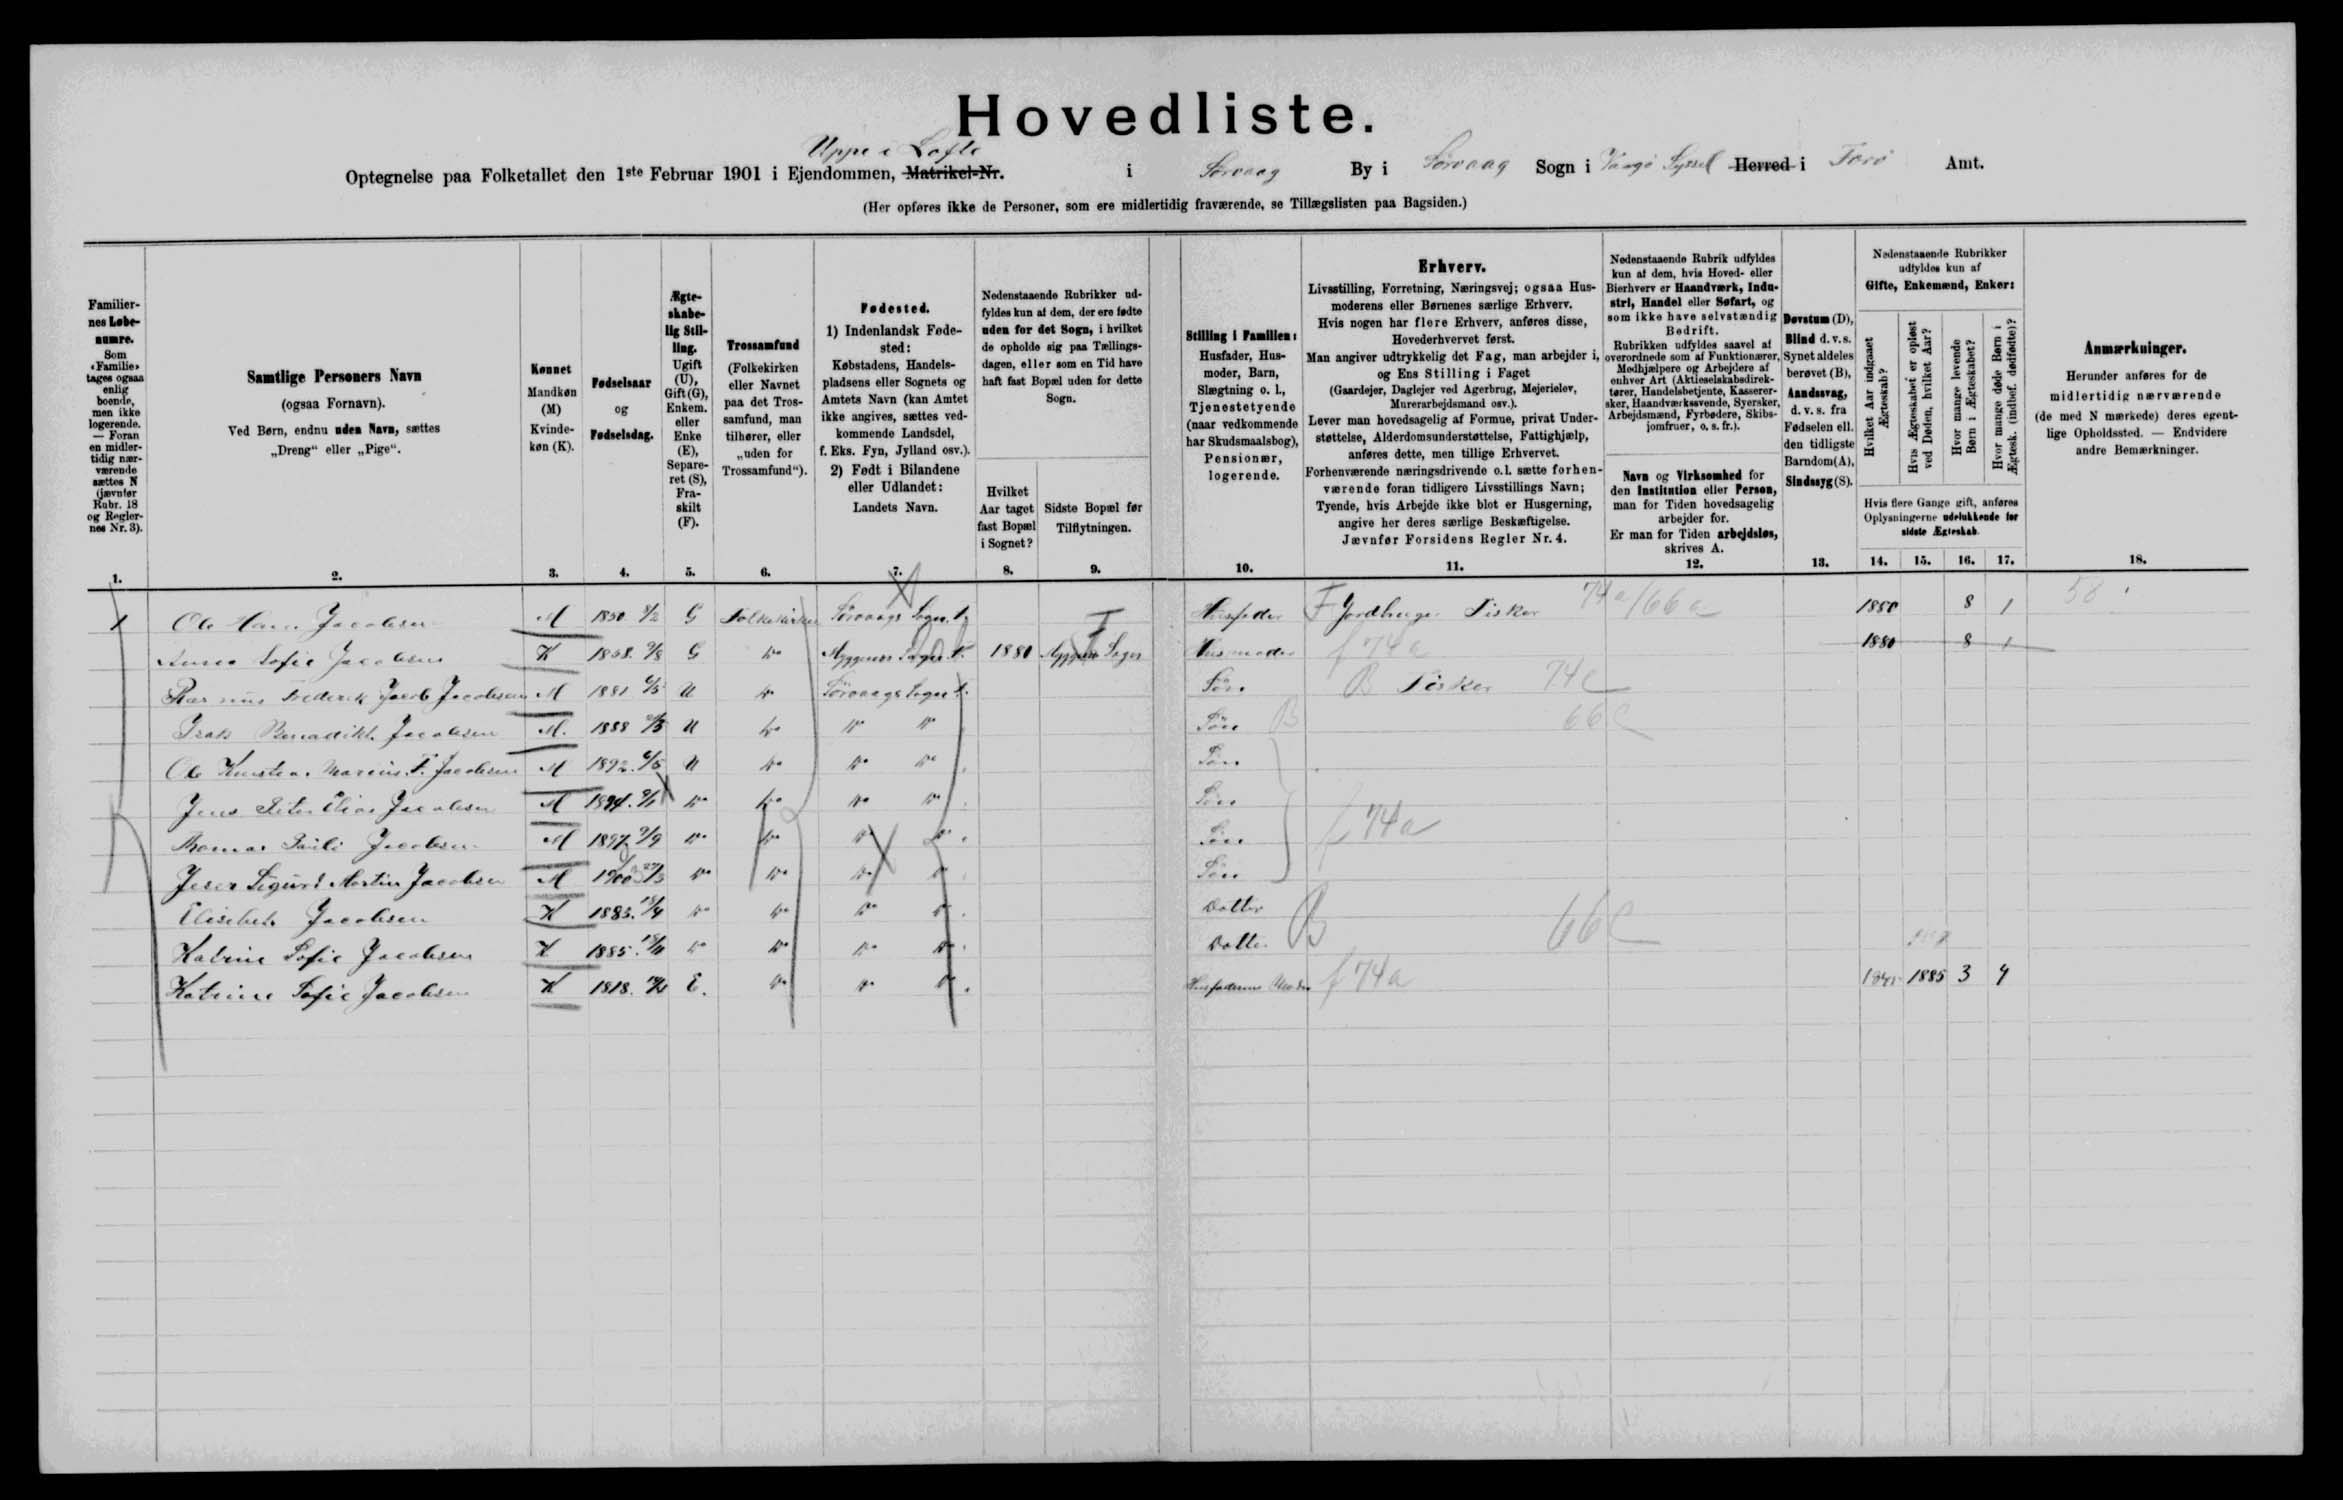 Hovedliste.
Uppe i Lofte
Optegnelse paa Folketallet den 1ste Februar 1901 i Ejendommen, Matrikel-Nr. i Sørvaag By i Sørvaag Sogn i Vaagø Syssel Herred i Færø Amt.
(Her opføres ikke de Personer, som ere midlertidig fraværende, se Tillægslisten paa Bagsiden.)
Familiernes Løbenumre.
Som «Familie» tages ogsaa enlig boende, men ikke logerende. — Foran en midlertidig nærværende sættes N (jævnfør Rubr. 18 og Reglernes Nr. 3).
Samtlige Personers Navn
(ogsaa Fornavn).
Ved Børn, endnu uden Navn, sættes
„Dreng“ eller „Pige“.
Kønnet
Mandkøn (M)
Kvindekøn (K).
Fødselsaar
og
Fødselsdag.
Ægteskabelig Stilling.
Ugift (U), Gift (G), Enkem. eller Enke (E), Separeret (S), Fraskilt (F).
Trossamfund
(Folkekirken eller Navnet paa det Trossamfund, man tilhører, eller „uden for Trossamfund“).
Fødested.
1) Indenlandsk Fødested:
Købstadens, Handelspladsens eller Sognets og Amtets Navn (kan Amtet ikke angives, sættes vedkommende Landsdel, f. Eks. Fyn, Jylland osv.).
2) Født i Bilandene eller Udlandet:
Landets Navn.
Nedenstaaende Rubrikker udfyldes kun af dem, der ere fødte uden for det Sogn, i hvilket de opholde sig paa Tællingsdagen, eller som en Tid have haft fast Bopæl uden for dette Sogn.
Hvilket Aar taget fast Bopæl i Sognet?
Sidste Bopæl før Tilflytningen.
Stilling i Familien:
Husfader, Husmoder, Barn, Slægtning o. l., Tjenestetyende (naar vedkommende har Skudsmaalsbog), Pensionær, logerende.
Erhverv.
Livsstilling, Forretning, Næringsvej; ogsaa Husmoderens eller Børnenes særlige Erhverv.
Hvis nogen har flere Erhverv, anføres disse, Hovederhvervet først.
Man angiver udtrykkelig det Fag, man arbejder i, og Ens Stilling i Faget
(Gaardejer, Daglejer ved Agerbrug, Mejerielev, Murerarbejdsmand osv.).
Lever man hovedsagelig af Formue, privat Understøttelse, Alderdomsunderstøttelse, Fattighjælp, anføres dette, men tillige Erhvervet.
Forhenværende næringsdrivende o. l. sætte forhenværende foran tidligere Livsstillings Navn; Tyende, hvis Arbejde ikke blot er Husgerning, angive her deres særlige Beskæftigelse.
Jævnfør Forsidens Regler Nr. 4.
Nedenstaaende Rubrik udfyldes kun af dem, hvis Hoved- eller Bierhverv er Haandværk, Industri, Handel eller Søfart, og som ikke have selvstændig Bedrift.
Rubrikken udfyldes saavel af overordnede som af Funktionærer, Medhjælpere og Arbejdere af enhver Art (Aktieselskabsdirektører, Handelsbetjente, Kasserersker, Haandværkssvende, Syersker, Arbejdsmænd, Fyrbødere, Skibsjomfruer, o. s. fr.).
Navn og Virksomhed for den Institution eller Person, man for Tiden hovedsagelig arbejder for.
Er man for Tiden arbejdsløs, skrives A.
Døvstum (D), Blind d. v. s. Synet aldeles berøvet (B), Aandssvag, d. v. s. fra Fødselen ell. den tidligste Barndom (A), Sindssyg (S).
Nedenstaaende Rubrikker udfyldes kun af Gifte, Enkemænd, Enker:
Hvilket Aar indgaaet Ægteskab?
Hvis Ægteskabet er opløst ved Døden, hvilket Aar?
Hvor mange levende Børn i Ægteskabet?
Hvor mange døde Børn i Ægtesk. (indbef. dødfødte)?
Hvis flere Gange gift, anføres Oplysningerne udelukkende for sidste Ægteskab.
Anmærkninger.
Herunder anføres for de midlertidig nærværende (de med N mærkede) deres egentlige Opholdssted. — Endvidere andre Bemærkninger.
1. 2. 3. 4. 5. 6. 7. 8. 9. 10. 11. 12. 13. 14. 15. 16. 17. 18.
1 Ole Hans Jacobsen M 1850 G Folkekirken Sørvaags Sogn Husfader F Jordbruger Fisker 74a/66a 1880 8 1 58
Sofie Jacobsen K 1858 G do Myggenæs Sogn 1880 Myggenæs Sogn Husmoder f 74a 1880 8 1
Rasmus Frederik Jacob Jacobsen M 1881 U do Sørvaags Sogn Søn B Fisker 74c
Isak Benedikt Jacobsen M. 1888 U do do do Søn B 66c
Ole Marius F. Jacobsen M 1892 U do do do Søn
Jens Peter Elias Jacobsen M 1894 do do do do Søn
Thomas Jacobsen M 1897 do do do do Søn f 74a
Sigurd Martin Jacobsen M 1900 do do do do Søn
Elisabeth Jacobsen K 1883. do do do do Datter B 66c
Katrine Sofie Jacobsen K 1885. do do do do Datter
Katrine Sofie Jacobsen K 1818. E. do do do Husfaderens Moder f 74a 1885 3 4